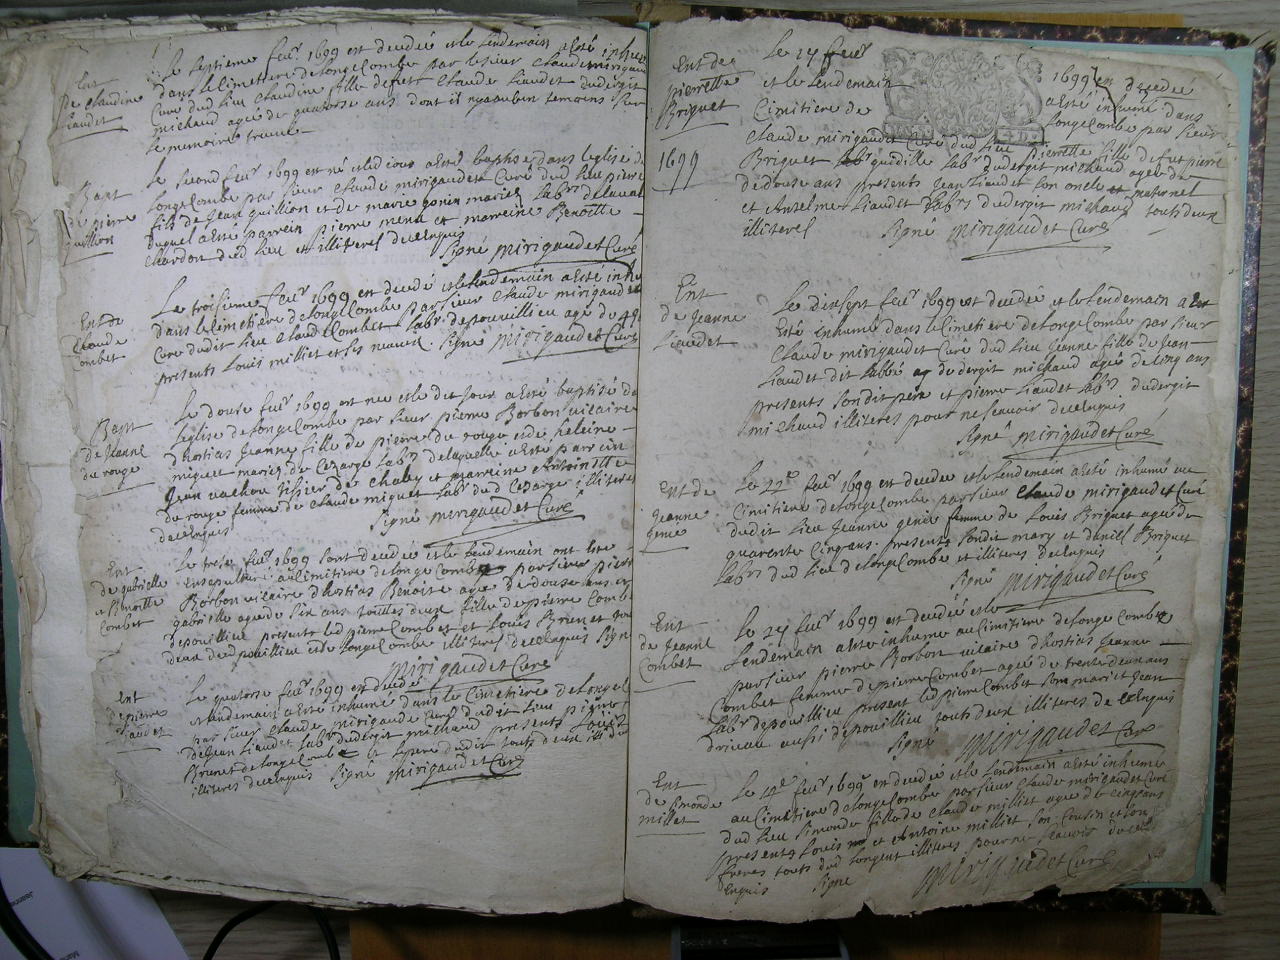 Ent
de claudine
Liaudet
Le septieme feur 1699 est decedée et le Lendemain a esté inhumée
dans le Cimetiere de longeCombe par le sieur Claude mirigaudet
Curé dud lieu Claudine fille de feu Claude Liaudet du dergit
michaud agée de quatorse ans dont il ny a aucun temoins pour
le memoire
Bapt
de pierre
guillion
Le second feur 1699 est né et led jour a esté baptisé dans leglise de
longeCombe par sieur Claude mirigaudet Curé dud lieu pierre
fils de Jean guillion et de marie gonin mariés labrs
duquel a esté parrein pierre et marreine Benoitte
chardon dud lieu et illiteres de ce enquis
Signé mirigaudet Curé
Ent de
Claude
Combet
Le troisieme feur 1699 est decedé et le lendemain a esté inhumé
dans le Cimetiere de longeCombe par sieur Claude mirigaudet
Curé dudit lieu Claud Combet labr de pouvillieu agé de
presents Louis milliet Signé mirigaudet Curé
Bapt
de Jeanne
du rouge
Le douse feur 1699 est née et le dit jour a esté baptisé da
leglise de longeCombe par sieur pierre Borbon vicaire
dhostias Jeanne fille de pierre du rouge et de heleine
miguet mariés de Cesarge labrs de laquelle a esté parrein
Jean vachou tissier de Chaley et marreine Antoinette
du rouge femme de claude miguet labr dud Cesarge illiteres
de ce enquis
Signé mirigaudet Curé
Ent
de gabrielle
et Benoitte
Combet
Le trese feur 1699 sont decedée et le lendemain ont esté
ensepulturé au Cimitiere de longe Combe par sieur pierre
Borbon vicaire dhostias Benoite agée de douse ans et
gabrielle agée de six ans touttes deux fille de pierre Combet
de pouillieu presents led pierre Combet et Louis Brun et
dud pouillieu et de longeCombe illiteres de ce enquis Signé
mirigaudet Curé
Ent
de pierre
Liaudet
Le quatorse feur 1699 est decedé
et lendemain a esté inhumé dans le Cimetiere de longeC
par sieur Claude mirigaudet Curé dudit lieu pierre
de Jean Liaudet labr du dergit michaud presents Louis
Brunet de longeCombe
illiteres de ce enquis Signé mirigaudet Curé
Ent de
pierrette
Briquet
1699
Le 14 feur
1699 est decedée
et le Lendemain
a esté inhumé dans
Cimitiere de
longeCombe par sieur
Claude mirigaudet Curé dud lieu pierrette fille de feu pierre
Briquet labr du dergit michaud agée de
de douse ans presents Jean Liaudet son oncle maternel
et Anselme Liaudet labrs du dergit michaud touts deux
illiteres Signé mirigaudet Curé
Ent
de Jeanne
Liaudet
Le disept feur 1699 est decedée et le Lendemain a
Esté enhumée dans le Cimetiere de longeCombe par sieur
Claude mirigaudet Curé dud lieu Jeanne fille de Jean
Liaudet dit labbé du dergit michaud agée de cinq ans
presents son dit pere et pierre Liaudet labrs du dergit
michaud illiteres pour ne scavoir de ce enquis
Signé mirigaudet Curé
Ent de
Jeanne
Le 22e feur 1699 est decedée et le lendemain a esté inhumé au
Cimitiere de longeCombe par sieur Claude mirigaudet Curé
dudit lieu Jeanne femme de Louis Briquet agée de
quarante Cinq ans presents son dit mary et Briquet
labrs dud lieu de longeCombe et illiteres de ce enquis
Signé mirigaudet Curé
Ent
de Jeanne
Combet
Le 24 feur 1699 est decedée et le
Lendemain a esté inhumé au Cimitiere de longe Combe
par sieur pierre Borbon vicaire dhostias Jeanne
Combet femme de pierre Combet agée de trente deux ans
labr de pouillieu present led pierre Combet son mari et Jean
aussi de pouillieu touts deux illiteres de ce enquis
Signé mirigaudet Curé
Ent
de Simonde
milliet
Le feur 1699 est decedé et le Lendemain a esté inhumé
au Cimetiere de longeCombe par sieur Claude mirigaudet Curé
dud lieu Simonde fille de Claude milliet agée de cinq ans
presents Louis et Antoine milliet son Cousin et son
freres touts dud longent illiteres pour ne scavoir de ce
enquis Signé mirigaudet Curé